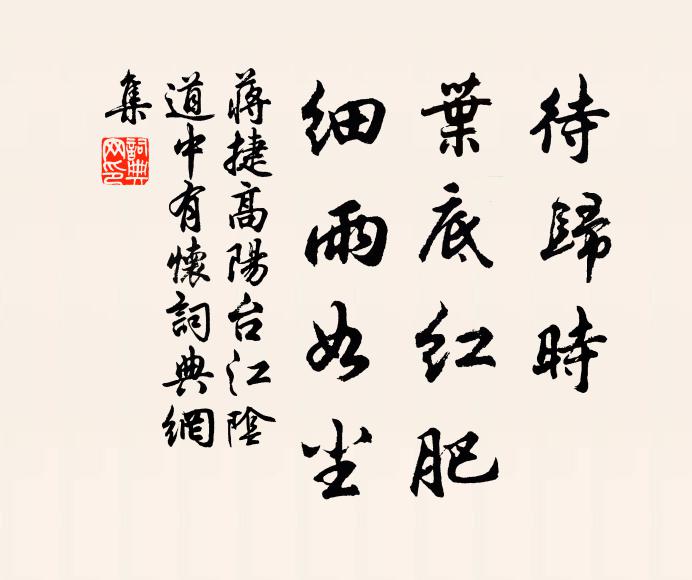 待歸時
葉底紅肥
細雨如尘
蔣捷高陽台江陰
道中有懷詞典網
集
詞典
网印